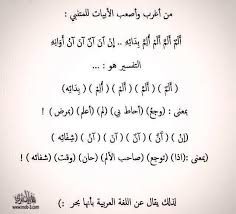 من أغرب وأصعب الأبيات للمتنبي :
أَلَمٌ أَلَمَّ أَلَمْ أُلِمَّ بِدَائِهِ .. إِنْ آنَ آنٌ آنَ آنُ أَوَانِهِ
التفسير هو : ...
( أَلَمٌ ) ( أَلَمَّ ) ( أَلَمْ ) ( أُلِمَّ ) ( بِدَائِهِ )
بمعنى : (وجعٌ) (أحاط بي) (لم) (أعلم) (بمرضٍ) !
(إِنْ) ( آنَ ) ( آنٌ ) ( آنَ ) ( آنُ ) (شِفَائِهِ )
(بمعنى : (إذا) (توجع) (صاحب الألم) (حان) (وقت) (شفائه) !
لذلك يقال عن اللغة العربية بأنها بحر :)
www.mob-3.com